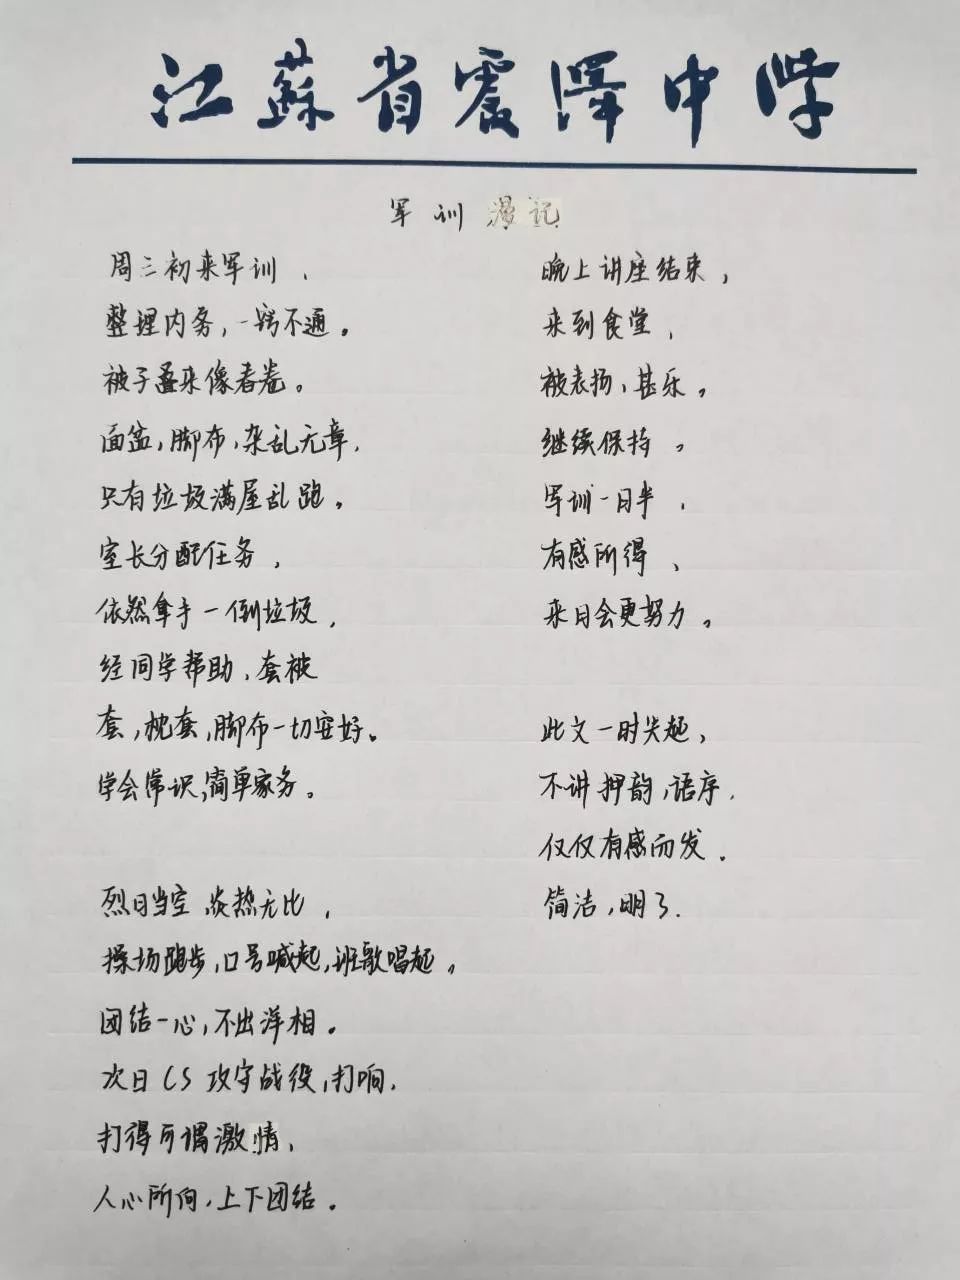 江蘇省震澤中学
军训漫记
周三初来军训，
整理内务，一窍不通。
被子叠来像春卷。
面盆，脚布，杂乱无章，
只有垃圾满屋乱跑。
室长分配任务，
依然拿手一倒垃圾，
经同学帮助，套被
套，枕套，脚布一切安好。
学会常识，简单家务。
烈日当空，炎热无比，
操场跑步，口号喊起，班歌唱起。
团结一心，不出洋相。
次日CS攻守战役，打响，
打得可谓激情，
人心所向，上下团结。
晚上讲座结束，
来到食堂，
被表扬，甚乐。
继续保持。
军训一日半，
有感所得，
来日会更努力。
此文一时兴起，
不讲押韵，语序，
仅仅有感而发．
简洁，明了．